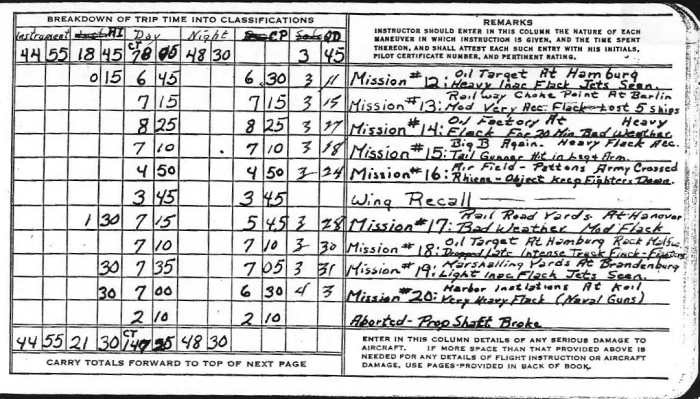 BREAKDOWN OF TRIP TIME INTO CLASSIFICATIONS
REMARKS
INSTRUCTOR SHOULD ENTER IN THIS COLUMN THE NATURE OF EACH
MANEUVER IN WHICH INSTRUCTION IS GIVEN, AND THE TIME SPENT
THEREON, AND SHALL ATTEST EACH SUCH ENTRY WITH HIS INITIALS,
PILOT CERTIFICATE NUMBER, AND PERTINENT RATING.
Instrument AI Day Night CP
44 55 18 45 CT 48 30 3 45
0 15 6 45 6 30 3 11 Mission #12: Oil Target At Hamburg
Heavy Inac Flack Jets Seen.
7 15 7 15 3 15 Mission #13: Railway Choke Point At Berlin
Mod Very Acc. Flack Lost 5 ships
8 25 8 25 3 Mission #14: Oil Factory At Heavy
Flack For 20 Min Bad Weather
7 10 7 10 3 18 Mission #15: Big B Again. Heavy Flack Acc.
Tail Gunner Hit in Leg & Arm.
4 50 4 50 3 24 Mission #16: Air Field - Pattons Army Crossed
Rhiens - Object Keep Fighters Down.
3 45 3 45 Wing Recall
1 30 7 15 5 45 3 28 Mission #17: Rail Road Yards At Hanover
Bad Weather Mod Flack
7 10 7 10 3 30 Mission #18: Oil Target At Hamburg Rack
Late Intense Track Flack - Fighters
30 7 35 7 05 3 31 Mission #19: Marshalling Yards At Brandenburg
Light Inac Flack Jets Seen.
30 7 00 6 30 4 3 Mission #20: Harbor Instlations At Keil
Very Heavy Flack (Naval Guns)
2 10 2 10 Aborted - Prop Shaft Broke
44 55 21 30 CT 48 30
CARRY TOTALS FORWARD TO TOP OF NEXT PAGE
ENTER IN THIS COLUMN DETAILS OF ANY SERIOUS DAMAGE TO
AIRCRAFT. IF MORE SPACE THAN THAT PROVIDED ABOVE IS
NEEDED FOR ANY DETAILS OF FLIGHT INSTRUCTION OR AIRCRAFT
DAMAGE, USE PAGES PROVIDED IN BACK OF BOOK.